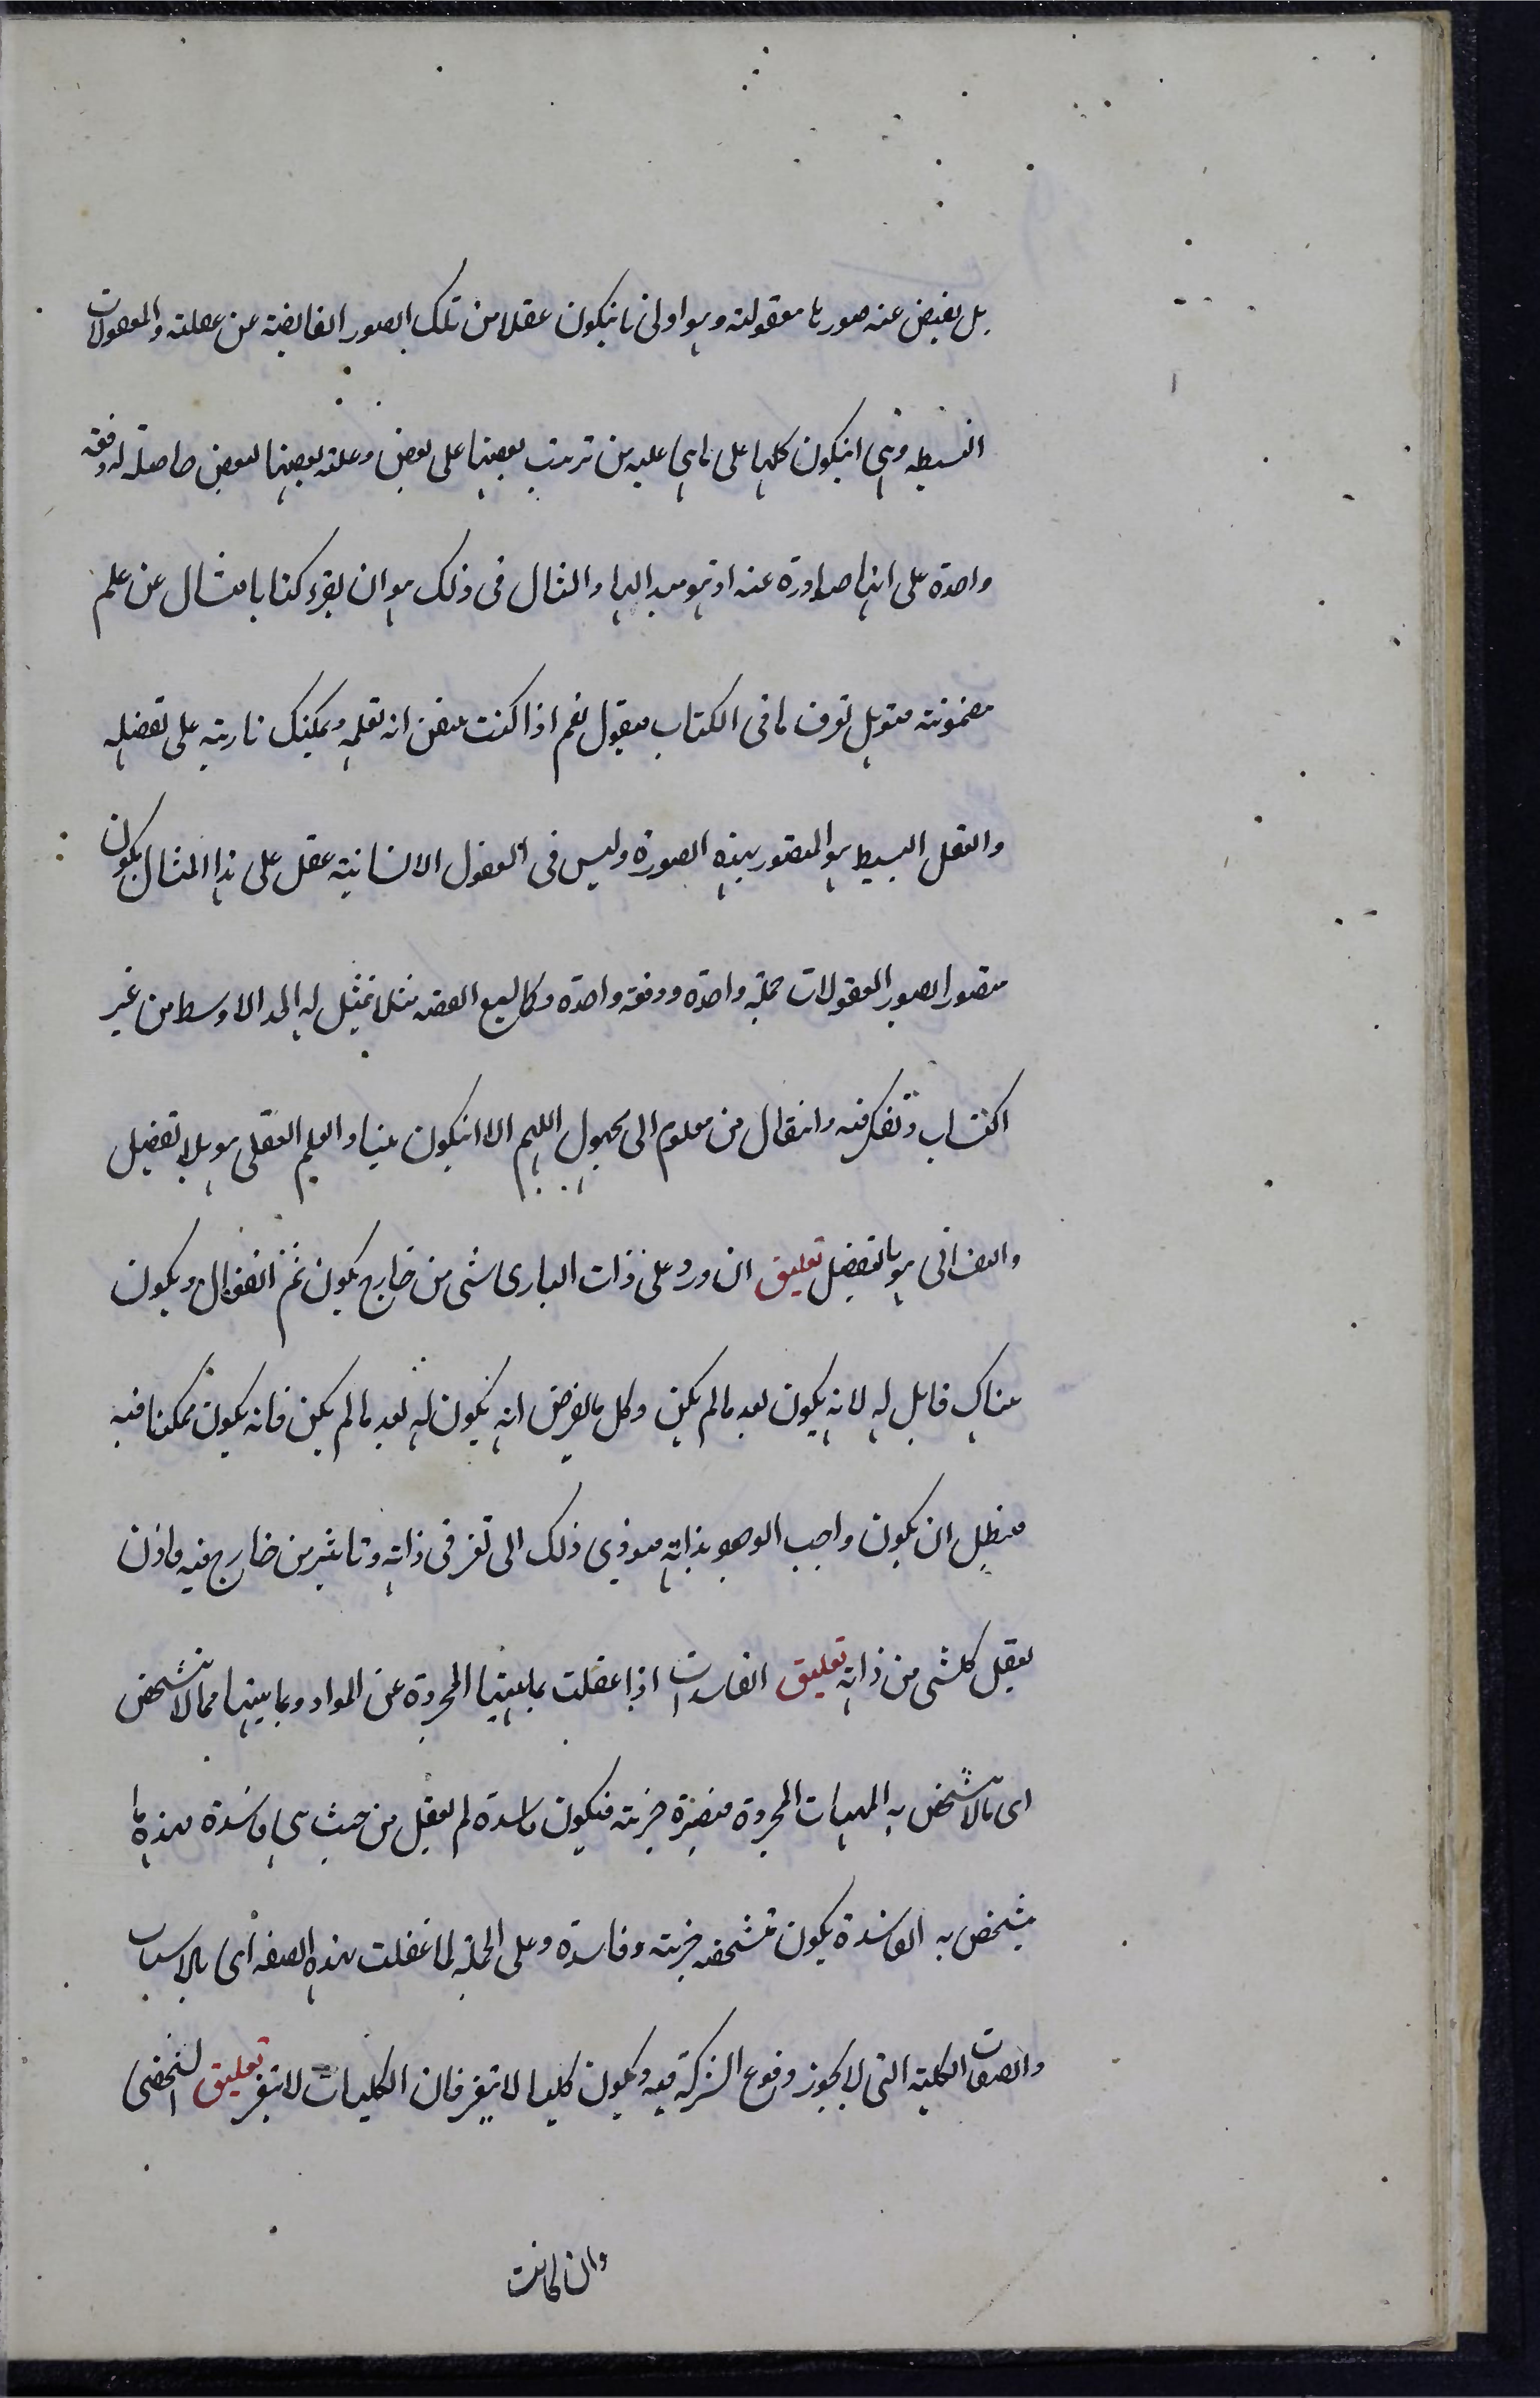 بل یفیض عنه صورها معقولة وهو اولی بانیکون عقلا من تلک الصور الفایضة عن عقلته والمعقولات
البسیطه وهی انیکون کلها علی ماهی علیه من ترتب بعضها علی بعض وعلته بعضها لبعض حاصلة له دفعه
واحدة علی انها صادرة عنه اذ هو مبدا لها والمثال فی ذلک هو ان یقرء کتابا فتسال عن علم
مضمونه هل تعرف مافی الکتاب فیقول نعم اذا کنت تیقن انه تعلمه ویمکنک تادیته علی تفصیله
والعقل البسیط هو المتصور بهذه الصورة ولیس فی العقول الانسانیة عقل علی هذا المثال یکون
متصور الصور المعقولات جملة واحدة ودفعة واحدة وکما یسمع القضیه مثلا تمثیل له الحد الاوسط من غیر
اکتساب وتفکر فیه وانتقال من معلوم الی مجهول اللهم الا انیکون نبیا والعلم العقلی هو بلا تفصیل
والنفسانی هو بالتفصیل تعلیق ان ورد علی ذات الباری شی من خارج یکون ثم انفعال ویکون
هناک قابل له لانه یکون بعد مالم یکن وکل مایفرض انه یکون له بعد مالم یکن فانه یکون ممکنا فیه
فبطل ان یکون واجب الوجود بذاته فیوذی ذلک الی تغیر فی ذاته وتاثیر من خارج فیه فاذن
یعقل کلشی من ذاته تعلیق الفاسدات اذا عقلت بماهیتها المجردة عن المواد وبما یتبعها مما لا یتشخص
ای مالا یتشخص به المهیات المجردة فتصیره جزیه فیکون فاسدة لم یعقل من حیث هی فاسدة بهذه ما
یتشخص به الفاسدة یکون متشخصه جزیه وفاسدة وعلی الجملة لما عقلت بهذه الصفه ای بالاسباب
والصفات الکلیة التی لا یجوز وقوع الشرکة فیه ویکون کلیا لا یتغیر فان الکلیات لا یتغیر تعلیق الشخصی
وان کانت